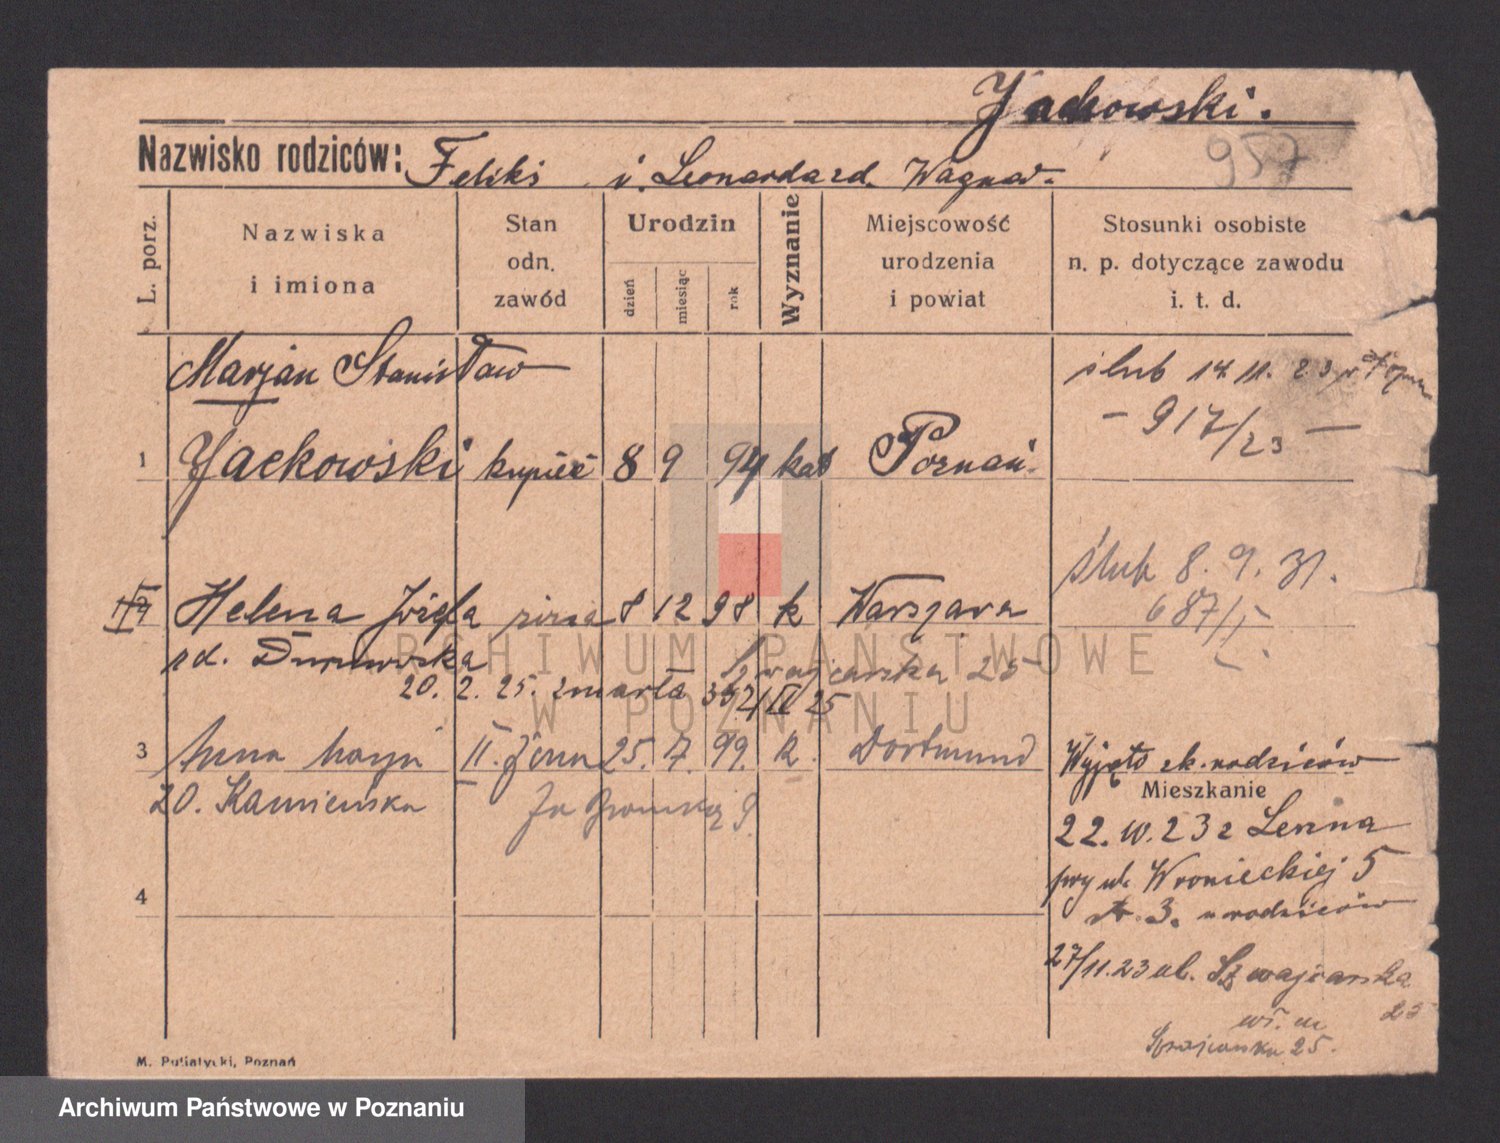 Jackowski.
957
Nazwisko rodziców: Feliks i. Leonarda zd. Wagner.
L. porz.
Nazwiska
i imiona
Stan
odn.
zawód
Urodzin
dzień
miesiąc
rok
Wyznanie
Miejscowość
urodzenia
i powiat
Stosunki osobiste
n. p. dotyczące zawodu
i. t. d.
Marjan Stanisław
ślub 17. 11. 23
- 917/23 -
1 Jackowski kupiec 8 9 94 kat Poznań.
ślub 8. 9. 31.
687/I.
Helena Józefa żona 8 12 98 k Warszawa
zd.
Szwajcarska 25
20. 2. 25. zmarła
3 Anna Marja II. żona 25. 7. 99. k. Dortmund
Wyjęto z k. rodziców
zd. Kamieńska
Mieszkanie
22. 10. 23 z Leszna
przy ul. Wronieckiej 5
4
3. u rodziców
27/11. 23 ul. Szwajcarska
25
Szwajcarska 25.
M. Putiatycki, Poznań
ARCHIWUM PAŃSTWOWE
W POZNANIU
Archiwum Państwowe w Poznaniu